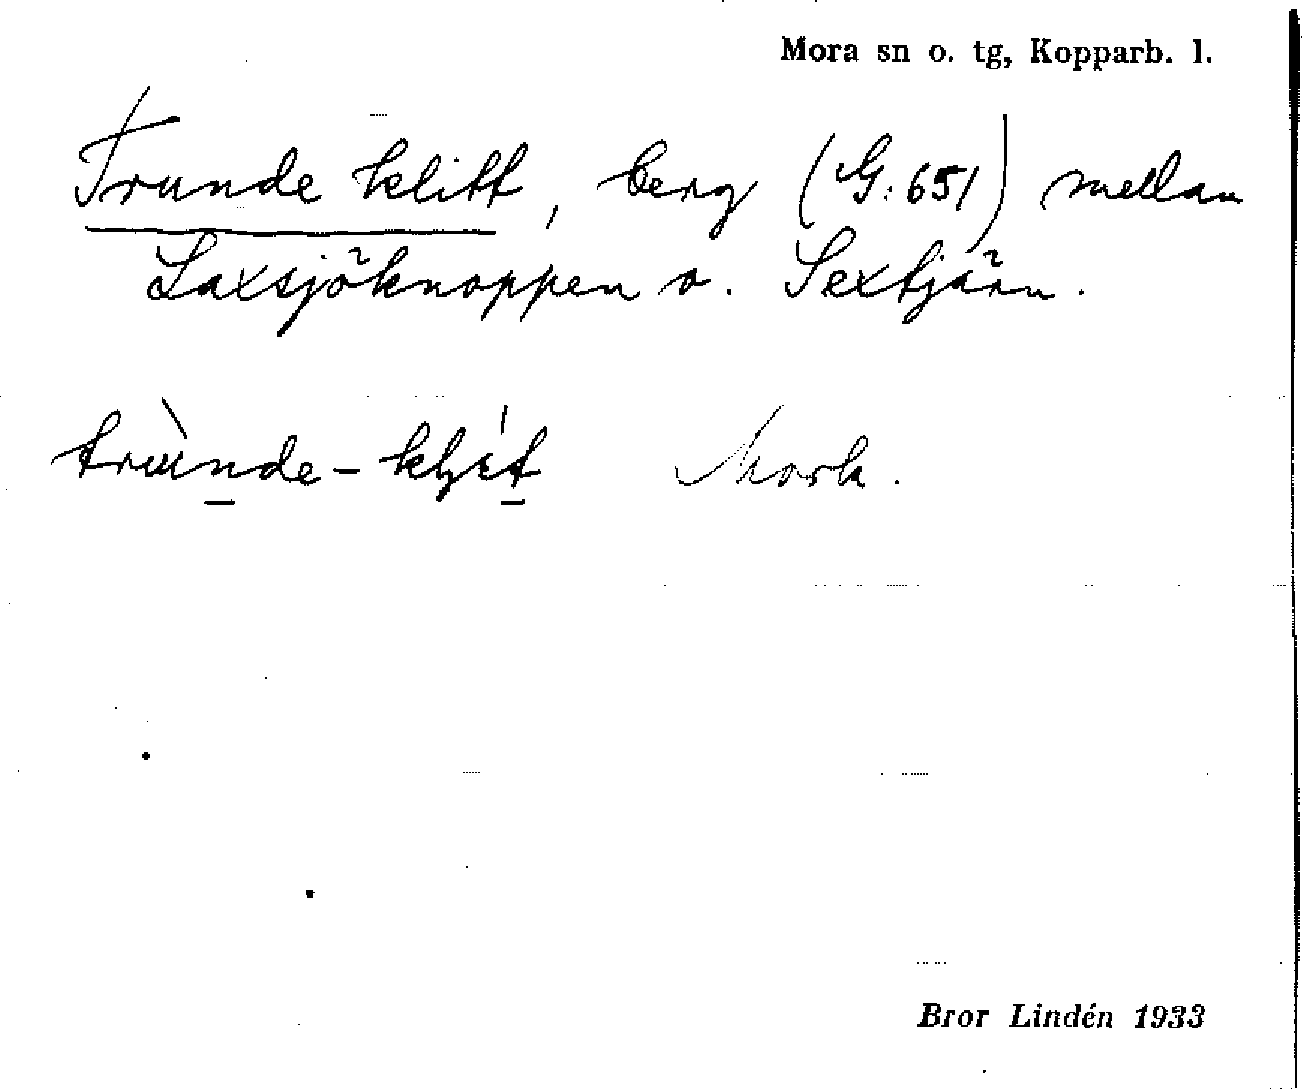 Mora sn o. tg, Kopparb. l.
Trunde klitt, berg (G:651) mellan
Laxsjöknoppen o. Sextjärn.
trùnde - kljít Mork.
Bror Lindén 1933